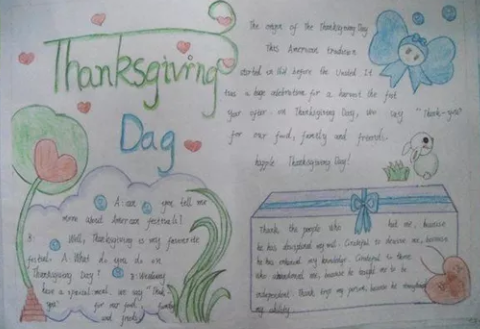 Thanksgiving
Dag
The origin of the Thanksgiving Day
This American tradition
started in before the United It
was a huge celebration for a harvest the fist
year after on Thanksgiving Day, we say "Thank-you"
for our food, family and friends.
happle Thanksgiving Day!
A: can you tell me
more about American festivals?
B: Well, Thanksgiving is my favourite
festival. A: What do you do on
Thanksgiving Day? B: We always
have a special meal. we say "thank
you" for our food, family
and friends
Thank the people who hut me, because
he has disciplined my will. Grateful to deceive me, because
he has enhanced my knowledge. Grateful to those
who abandoned me, because he taught me to be
independent. Thank trips my person, because he strengthened
my ability.